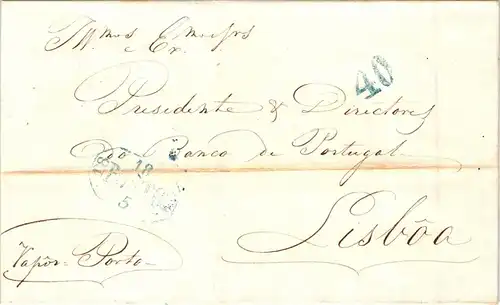 Ill.mos e Ex.mos Snrs
40
Presidente & Directores
do Banco de Portugal
18
5
Lisbôa
Vapôr Porto